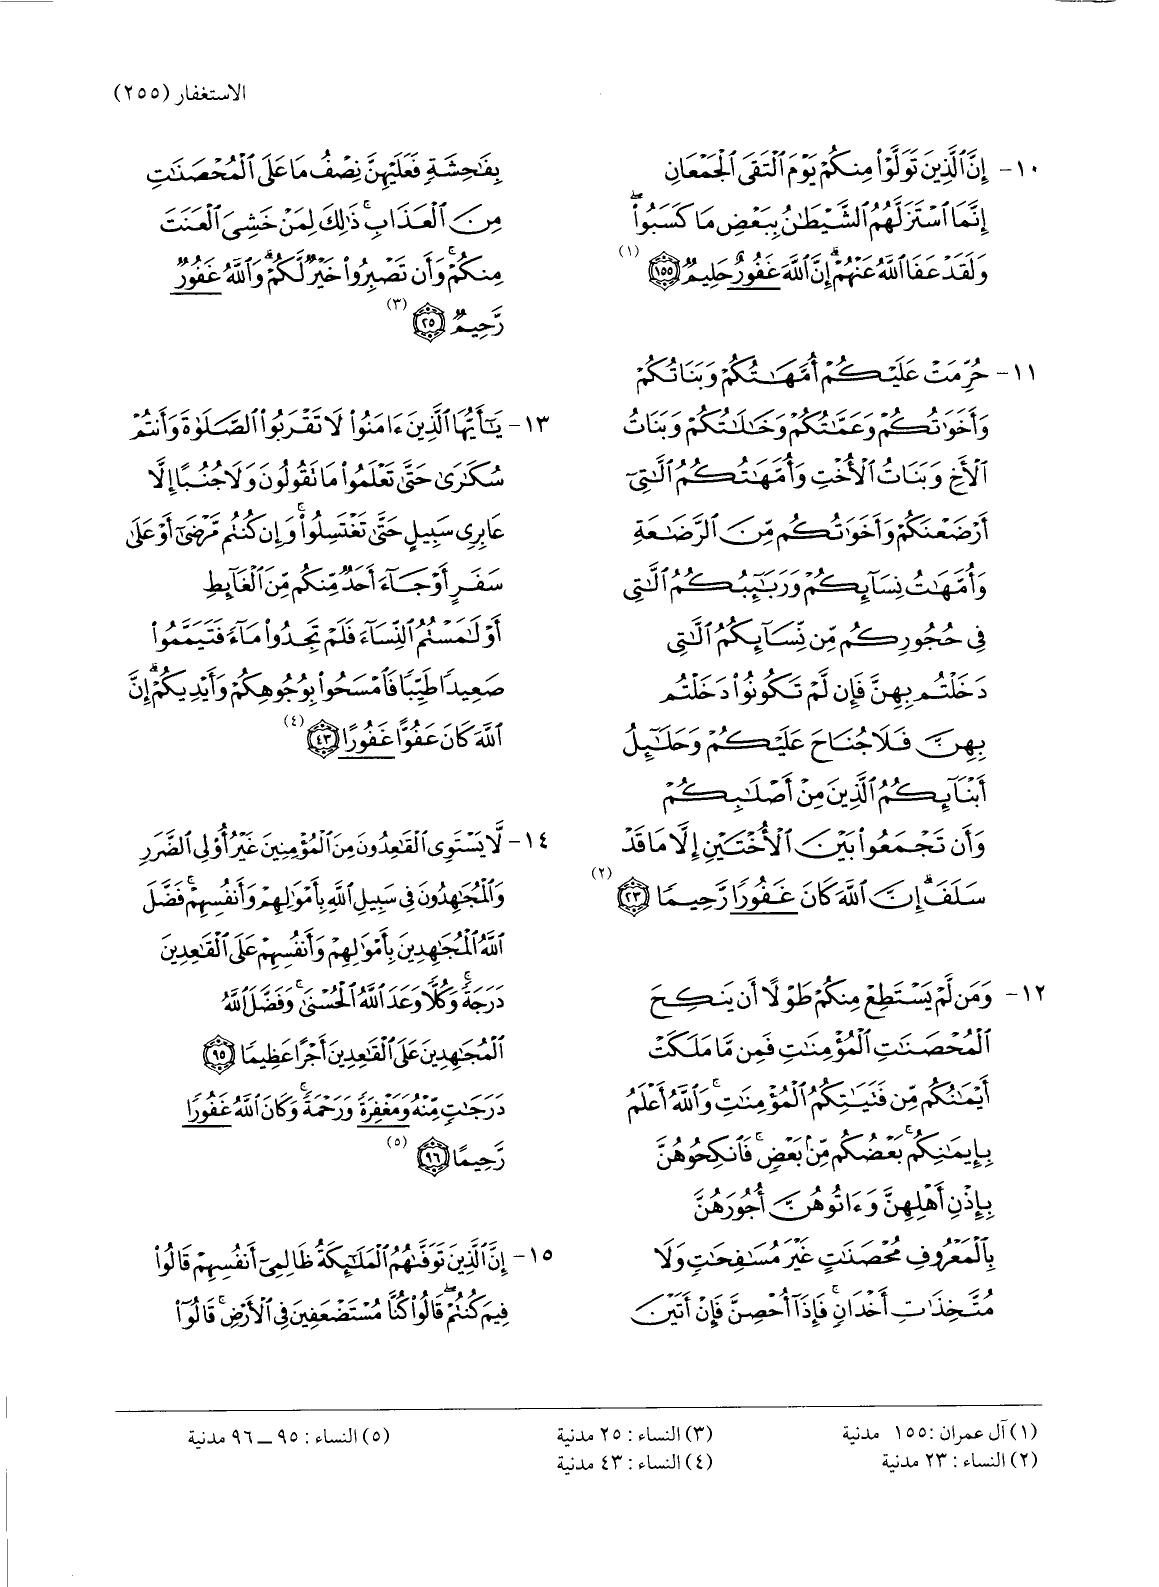 الاستغفار (٢٥٥)
١٠- إِنَّ ٱلَّذِينَ تَوَلَّوْا۟ مِنكُمْ يَوْمَ ٱلْتَقَى ٱلْجَمْعَانِ
إِنَّمَا ٱسْتَزَلَّهُمُ ٱلشَّيْطَٰنُ بِبَعْضِ مَا كَسَبُوا۟ۖ
وَلَقَدْ عَفَا ٱللَّهُ عَنْهُمْۗ إِنَّ ٱللَّهَ غَفُورٌ حَلِيمٌ ﴿١٥٥﴾ (١)
١١- حُرِّمَتْ عَلَيْكُمْ أُمَّهَٰتُكُمْ وَبَنَاتُكُمْ
وَأَخَوَٰتُكُمْ وَعَمَّٰتُكُمْ وَخَٰلَٰتُكُمْ وَبَنَاتُ
ٱلْأَخِ وَبَنَاتُ ٱلْأُخْتِ وَأُمَّهَٰتُكُمُ ٱلَّٰتِىٓ
أَرْضَعْنَكُمْ وَأَخَوَٰتُكُم مِّنَ ٱلرَّضَٰعَةِ
وَأُمَّهَٰتُ نِسَآئِكُمْ وَرَبَٰٓئِبُكُمُ ٱلَّٰتِى
فِى حُجُورِكُم مِّن نِّسَآئِكُمُ ٱلَّٰتِى
دَخَلْتُم بِهِنَّ فَإِن لَّمْ تَكُونُوا۟ دَخَلْتُم
بِهِنَّ فَلَا جُنَاحَ عَلَيْكُمْ وَحَلَٰٓئِلُ
أَبْنَآئِكُمُ ٱلَّذِينَ مِنْ أَصْلَٰبِكُمْ
وَأَن تَجْمَعُوا۟ بَيْنَ ٱلْأُخْتَيْنِ إِلَّا مَا قَدْ
سَلَفَۗ إِنَّ ٱللَّهَ كَانَ غَفُورًا رَّحِيمًا ﴿٢٣﴾ (٢)
١٢- وَمَن لَّمْ يَسْتَطِعْ مِنكُمْ طَوْلًا أَن يَنكِحَ
ٱلْمُحْصَنَٰتِ ٱلْمُؤْمِنَٰتِ فَمِن مَّا مَلَكَتْ
أَيْمَٰنُكُم مِّن فَتَيَٰتِكُمُ ٱلْمُؤْمِنَٰتِۚ وَٱللَّهُ أَعْلَمُ
بِإِيمَٰنِكُمۚ بَعْضُكُم مِّنۢ بَعْضٍۚ فَٱنكِحُوهُنَّ
بِإِذْنِ أَهْلِهِنَّ وَءَاتُوهُنَّ أُجُورَهُنَّ
بِٱلْمَعْرُوفِ مُحْصَنَٰتٍ غَيْرَ مُسَٰفِحَٰتٍ وَلَا
مُتَّخِذَٰتِ أَخْدَانٍۚ فَإِذَآ أُحْصِنَّ فَإِنْ أَتَيْنَ
بِفَٰحِشَةٍ فَعَلَيْهِنَّ نِصْفُ مَا عَلَى ٱلْمُحْصَنَٰتِ
مِنَ ٱلْعَذَابِۚ ذَٰلِكَ لِمَنْ خَشِىَ ٱلْعَنَتَ
مِنكُمْۚ وَأَن تَصْبِرُوا۟ خَيْرٌ لَّكُمْۗ وَٱللَّهُ غَفُورٌ
رَّحِيمٌ ﴿٢٥﴾ (٣)
١٣- يَٰٓأَيُّهَا ٱلَّذِينَ ءَامَنُوا۟ لَا تَقْرَبُوا۟ ٱلصَّلَوٰةَ وَأَنتُمْ
سُكَٰرَىٰ حَتَّىٰ تَعْلَمُوا۟ مَا تَقُولُونَ وَلَا جُنُبًا إِلَّا
عَابِرِى سَبِيلٍ حَتَّىٰ تَغْتَسِلُوا۟ۚ وَإِن كُنتُم مَّرْضَىٰٓ أَوْ عَلَىٰ
سَفَرٍ أَوْ جَآءَ أَحَدٌ مِّنكُم مِّنَ ٱلْغَآئِطِ
أَوْ لَٰمَسْتُمُ ٱلنِّسَآءَ فَلَمْ تَجِدُوا۟ مَآءً فَتَيَمَّمُوا۟
صَعِيدًا طَيِّبًا فَٱمْسَحُوا۟ بِوُجُوهِكُمْ وَأَيْدِيكُمْۗ إِنَّ
ٱللَّهَ كَانَ عَفُوًّا غَفُورًا ﴿٤٣﴾ (٤)
١٤- لَّا يَسْتَوِى ٱلْقَٰعِدُونَ مِنَ ٱلْمُؤْمِنِينَ غَيْرُ أُو۟لِى ٱلضَّرَرِ
وَٱلْمُجَٰهِدُونَ فِى سَبِيلِ ٱللَّهِ بِأَمْوَٰلِهِمْ وَأَنفُسِهِمْۚ فَضَّلَ
ٱللَّهُ ٱلْمُجَٰهِدِينَ بِأَمْوَٰلِهِمْ وَأَنفُسِهِمْ عَلَى ٱلْقَٰعِدِينَ
دَرَجَةًۚ وَكُلًّا وَعَدَ ٱللَّهُ ٱلْحُسْنَىٰۚ وَفَضَّلَ ٱللَّهُ
ٱلْمُجَٰهِدِينَ عَلَى ٱلْقَٰعِدِينَ أَجْرًا عَظِيمًا ﴿٩٥﴾
دَرَجَٰتٍ مِّنْهُ وَمَغْفِرَةً وَرَحْمَةًۚ وَكَانَ ٱللَّهُ غَفُورًا
رَّحِيمًا ﴿٩٦﴾ (٥)
١٥- إِنَّ ٱلَّذِينَ تَوَفَّىٰهُمُ ٱلْمَلَٰٓئِكَةُ ظَالِمِىٓ أَنفُسِهِمْ قَالُوا۟
فِيمَ كُنتُمْۖ قَالُوا۟ كُنَّا مُسْتَضْعَفِينَ فِى ٱلْأَرْضِۚ قَالُوٓا۟
(١) آل عمران : ١٥٥ مدنية
(٢) النساء : ٢٣ مدنية
(٣) النساء : ٢٥ مدنية
(٤) النساء : ٤٣ مدنية
(٥) النساء : ٩٥ ــ ٩٦ مدنية